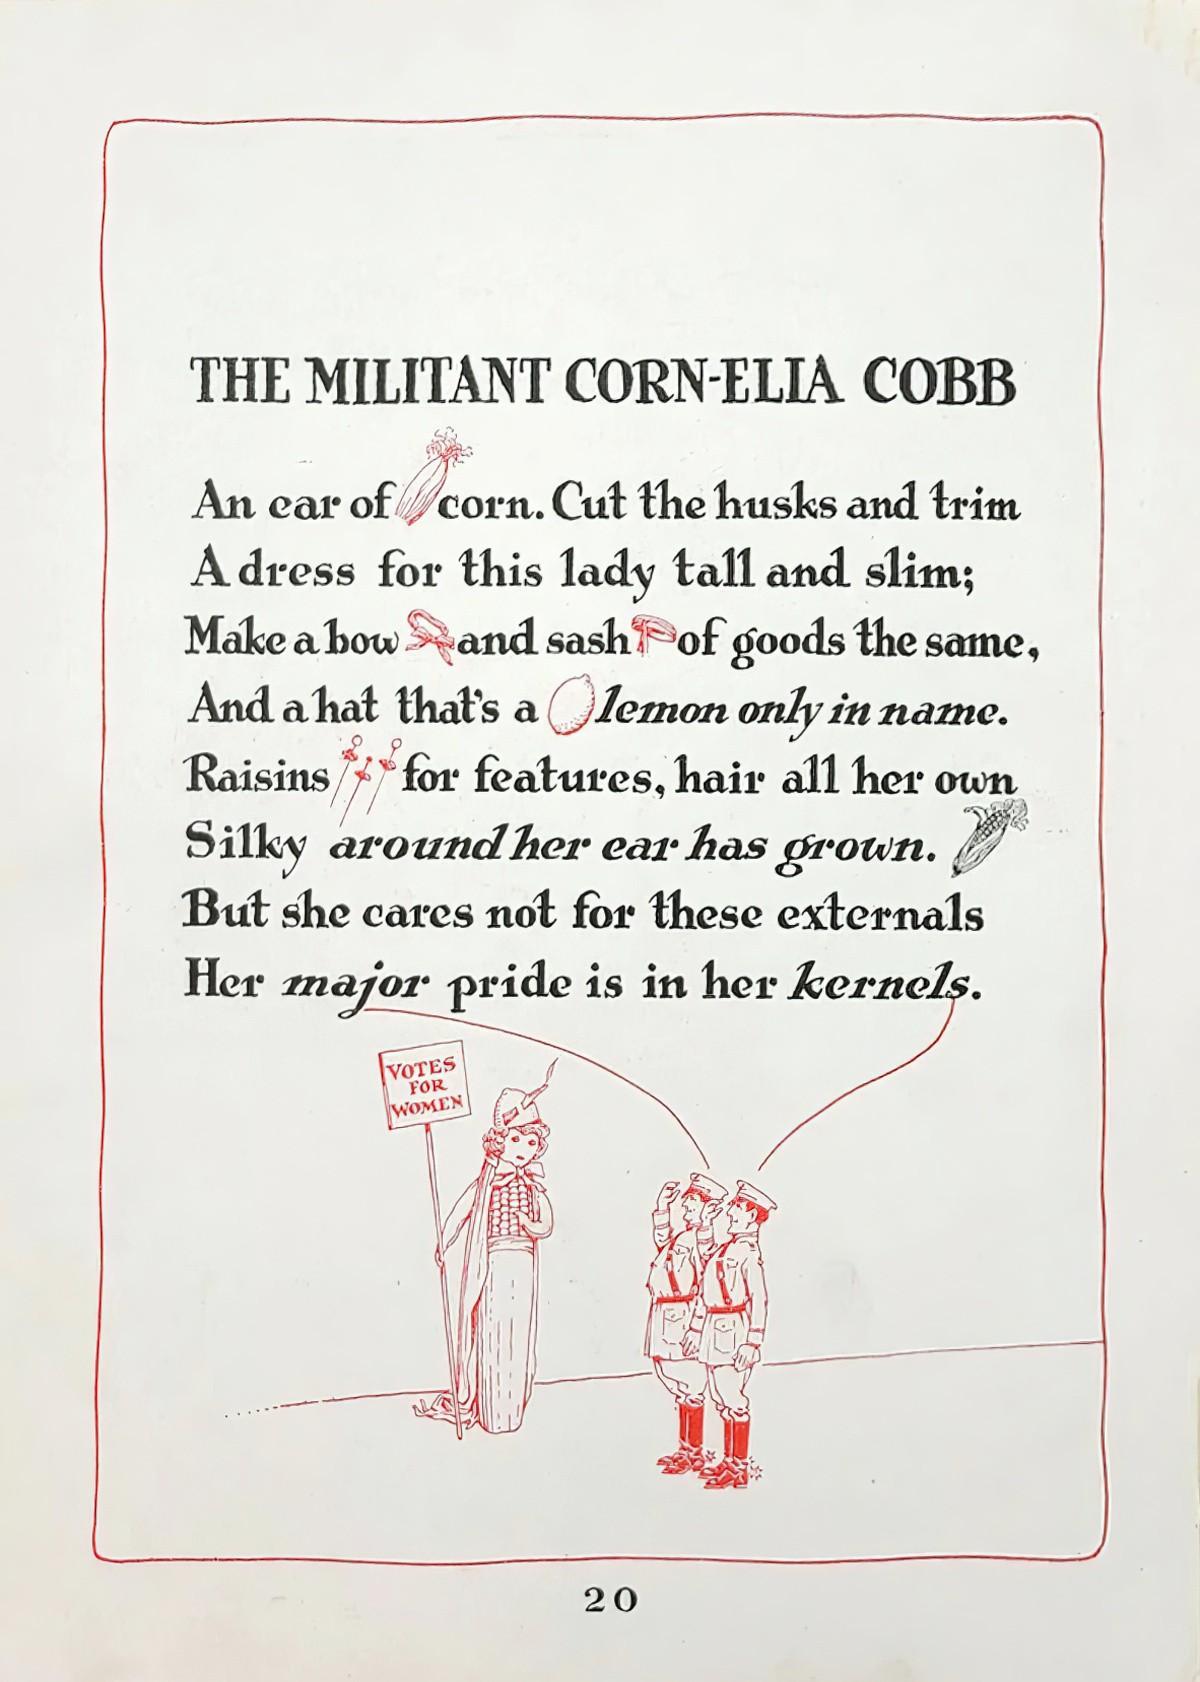 THE MILITANT CORN-ELIA COBB
An ear of corn. Cut the husks and trim
A dress for this lady tall and slim;
Make a bow and sash of goods the same,
And a hat that's a lemon only in name.
Raisins for features, hair all her own
Silky around her ear has grown.
But she cares not for these externals
Her major pride is in her kernels.
VOTES
FOR
WOMEN
20